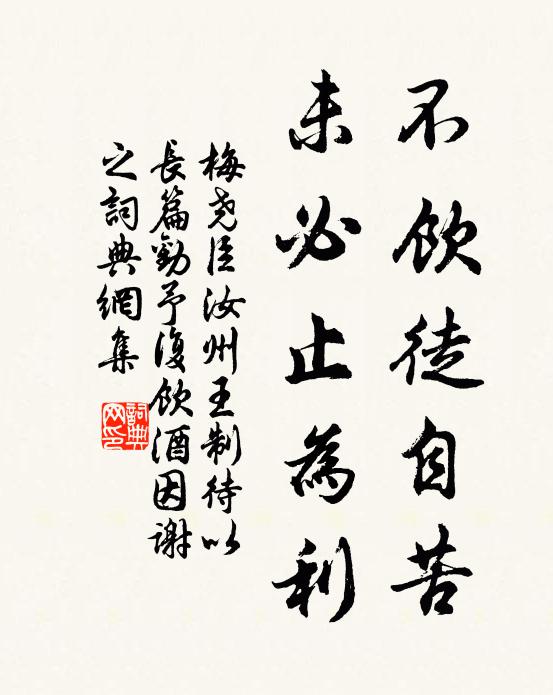 不飲徒自苦
未必止為利
梅堯臣汝州王制待以
長篇勸予復飲酒因謝
之詞典網集
詞典
网印